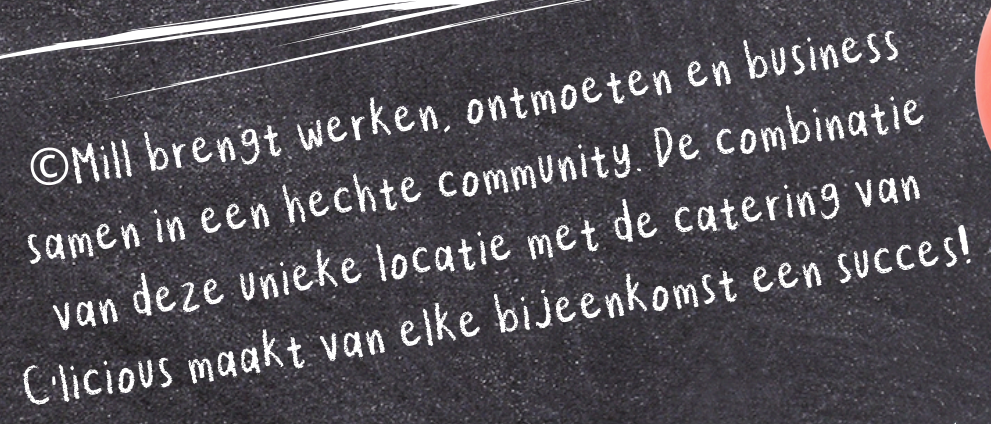 ©Mill brengt werken, ontmoeten en business
samen in een hechte community. De combinatie
van deze unieke locatie met de catering van
C'licious maakt van elke bijeenkomst een succes!